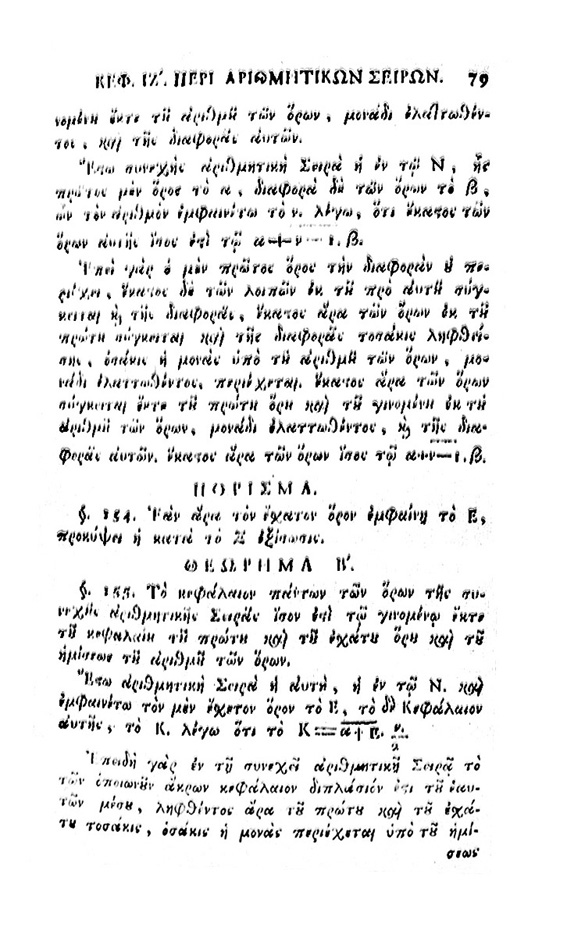 ΚΕΦ. ΙΖ'. ΠΕΡΙ ΑΡΙΘΜΗΤΙΚΩΝ ΣΕΙΡΩΝ. 79
νομένȣ ἔκτε τȣ͂ ἀριθμȣ͂ τῶν ὅρων, μονάδι ἐλαττωθέν-
τος, καὶ τῆς διαφορᾶς αὐτῶν.
Ἔστω συνεχὴς ἀριθμητικὴ Σειρὰ ἡ ἐν τῷ Ν, ἧς
πρῶτος μὲν ὅρος τὸ α, διαφορὰ δὲ τῶν ὅρων τὸ β,
ὧν τὸν ἀριθμὸν ἐμφαινέτω τὸ ν. λέγω, ὅτι ἕκαστος τῶν
ὅρων αὐτῆς ἴσος ἐστὶ τῷ α+ν—1.β.
Ἐπεὶ γὰρ ὁ μὲν πρῶτος ὅρος τὴν διαφορὰν ȣ̓ πε-
ριέχει, ἕκαστος δὲ τῶν λοιπῶν ἐκ τȣ͂ πρὸ αὐτȣ͂ σύγ-
κειται ϗ τῆς διαφορᾶς, ἕκαστος ἄρα τῶν ὅρων ἐκ τȣ͂
πρώτȣ σύγκειται καὶ τῆς διαφορᾶς τοσάκις ληφθεί-
σης, ὁσάκις ἡ μονὰς ὑπὸ τȣ͂ ἀριθμȣ͂ τῶν ὅρων, μο-
νάδι ἐλαττωθέντος, περιέχεται. ἕκαστος ἄρα τῶν ὅρων
σύγκειται ἔκτε τȣ͂ πρώτȣ ὅρȣ καὶ τȣ͂ γινομένȣ ἐκ τȣ͂
ἀριθμȣ͂ τῶν ὅρων, μονάδι ἐλαττωθέντος, ϗ τῆς δια-
φορᾶς αὐτῶν. ἕκαστος ἄρα τῶν ὅρων ἴσος τῷ α+ν—1.β.
ΠΟΡΙΣΜΑ.
§. 154. Ἐὰν ἄρα τὸν ἔχατον ὅρον ἐμφαίνῃ τὸ Ε,
προκύψει ἡ κατὰ τὸ Ζ ἐξίσωσις.
ΘΕΩΡΗΜΑ Β'.
§. 155. Τὸ κεφάλαιον πάντων τῶν ὅρων τῆς συ-
νεχȣ͂ς ἀριθμητικῆς Σειρᾶς ἴσον ἐστὶ τῷ γινομένῳ ἔκτε
τȣ͂ κεφαλαίȣ τȣ͂ πρώτȣ καὶ τȣ͂ ἐχάτȣ ὅρȣ καὶ τȣ͂
ἡμίσεως τȣ͂ ἀριθμȣ͂ τῶν ὅρων.
Ἔστω ἀριθμητικὴ Σειρὰ ἡ αὐτὴ, ἡ ἐν τῷ Ν. καὶ
ἐμφαινέτω τὸν μὲν ἔχατον ὅρον τὸ Ε, τὸ δὲ Κεφάλαιον
αὐτῆς, τὸ Κ. λέγω ὅτι τὸ Κ=α+Ε. ν/2
Ἐπειδὴ γὰρ ἐν τῇ συνεχεῖ ἀριθμητικῇ Σειρᾷ τὸ
τῶν ὁποιωνȣ͂ν ἄκρων κεφάλαιον διπλάσιόν ἐστι τȣ͂ ἑαυ-
τῶν μέσȣ, ληφθέντος ἄρα τȣ͂ πρώτȣ καὶ τȣ͂ ἐχά-
τȣ τοσάκις, ὁσάκις ἡ μονὰς περιέχεται ὑπὸ τȣ͂ ἡμί-
σεως